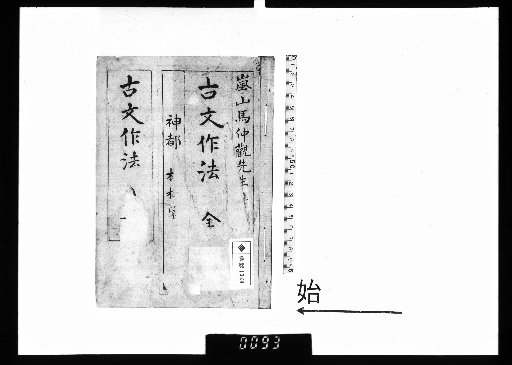 嵐山馬仲觀先生
古文作法 全
神都
古文作法
始
0093